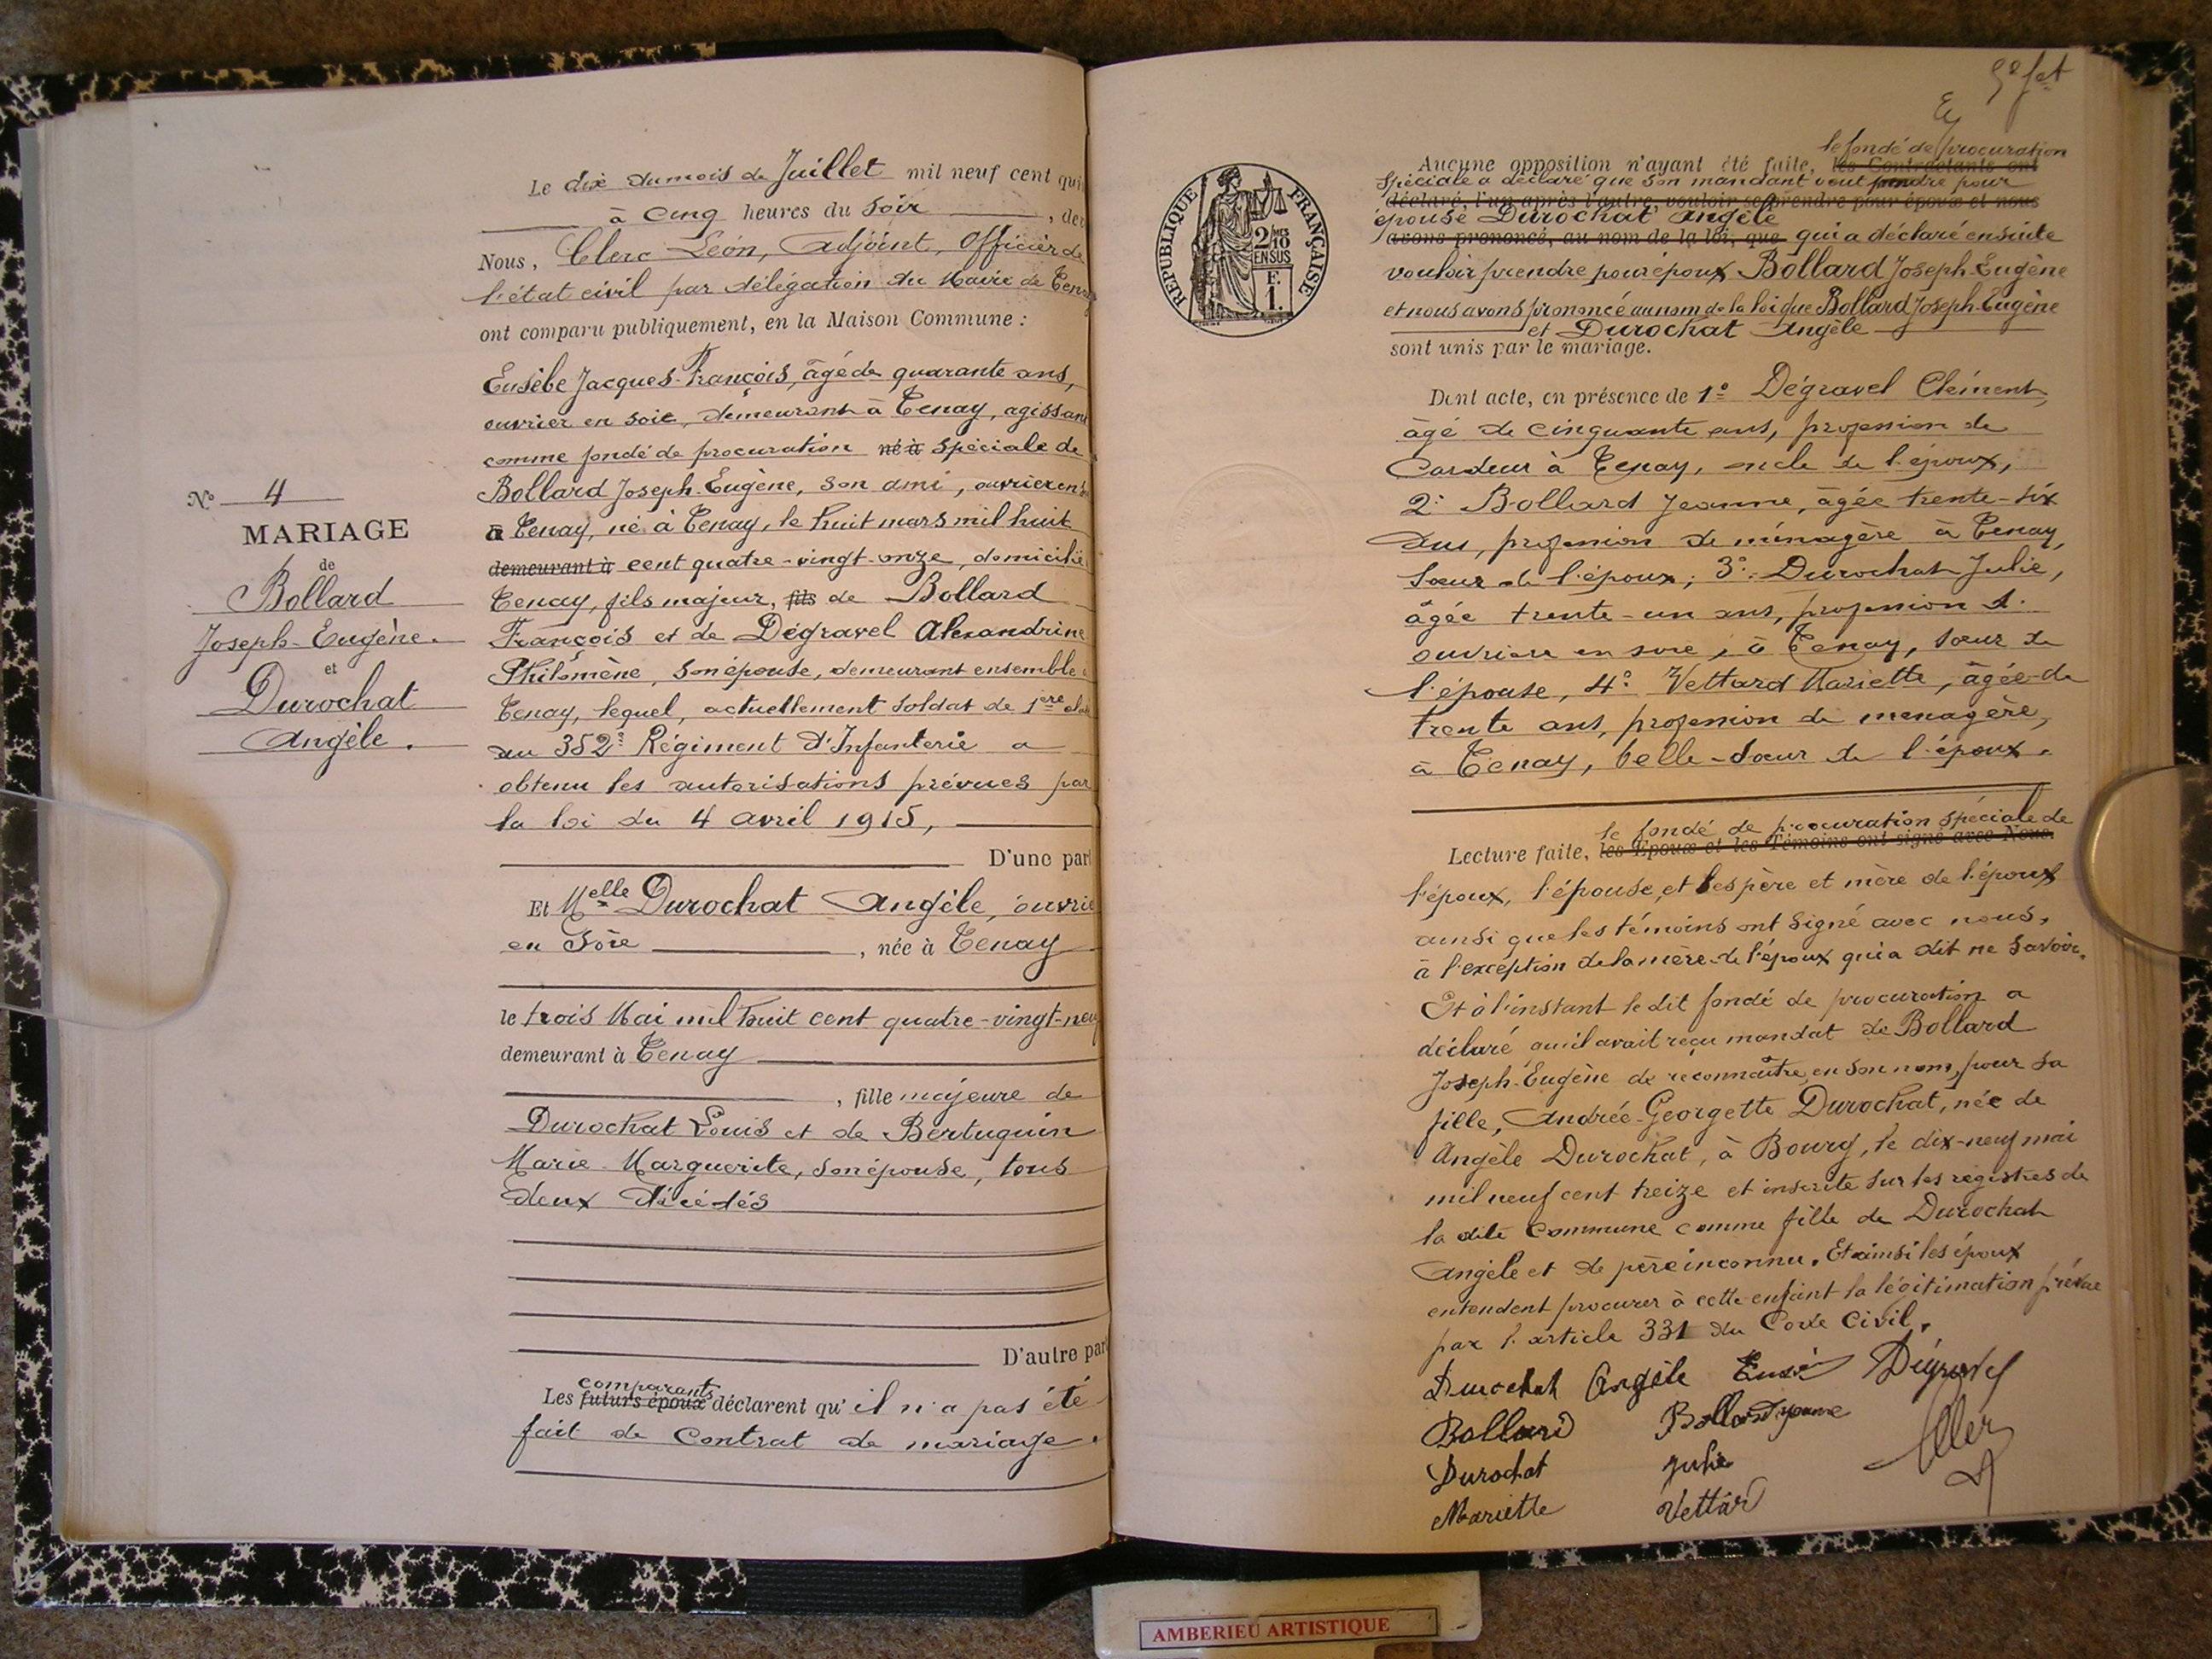 Le dix du mois de Juillet mil neuf cent qui
à cinq heures du soir, de
Nous, Clerc Léon, Adjoint, Officier de
l'état civil par délégation du Maire de Tenay
ont comparu publiquement, en la Maison Commune :
Eusèbe Jacques-François, âgé de quarante ans,
ouvrier en soie, demeurant à Tenay, agissant
comme fondé de procuration né à spéciale de
Bollard Joseph-Eugène, son ami, ouvrier en
à Tenay, né à Tenay, le huit mars mil huit
demeurant à cent quatre-vingt-onze, domicilié
Tenay, fils majeur, fils de Bollard
François et de Dégravel Alexandrine
Philomène, son épouse, demeurant ensemble à
Tenay, lequel, actuellement soldat de 1ère
au 352e Régiment d'Infanterie a
obtenu les autorisations prévues par
la loi du 4 avril 1915,
D'une part
Et Melle Durochat Angèle, ouvriè
en soie, née à Tenay
le trois Mai mil huit cent quatre-vingt-neuf
demeurant à Tenay
, fille majeure de
Durochat Louis et de Bertuguin
Marie-Marguerite, son épouse, tous
deux décédés
D'autre part
comparants
Les futurs époux déclarent qu'il n'a pas été
fait de contrat de mariage.
N° 4
MARIAGE
de
Bollard
Joseph-Eugène.
et
Durochat
Angèle.
le fondé de procuration
Aucune opposition n'ayant été faite, les Contractants ont
spéciale a déclaré que son mandant veut prendre pour
déclaré, l'un après l'autre, vouloir se prendre pour époux et nous
épouse Durochat Angèle
avons prononcé, au nom de la loi, que qui a déclaré ensuite
vouloir prendre pour époux Bollard Joseph-Eugène
et nous avons prononcé au nom de la loi que Bollard Joseph-Eugène
et Durochat Angèle
sont unis par le mariage.
RÉPUBLIQUE FRANÇAISE
2/10
EN SUS
F.
1.
Dont acte, en présence de 1° Dégravel Clément,
âgé de cinquante ans, profession de
Cardeur à Tenay, oncle de l'époux,
2° Bollard Jeanne, âgée trente-six
ans, profession de ménagère à Tenay,
soeur de l'époux; 3° Durochat Julie,
âgée trente-un ans, profession d.
ouvrière en soie, à Tenay, soeur de
l'épouse, 4° Vettard Mariette, âgée de
trente ans, profession de ménagère,
à Tenay, belle-soeur de l'époux.
le fondé de procuration spéciale de
Lecture faite, les Epoux et les Témoins ont signé avec Nous.
l'époux, l'épouse, et les père et mère de l'époux
ainsi que les témoins ont signé avec nous,
à l'exception de la mère de l'époux qui a dit ne savoir.
Et à l'instant le dit fondé de procuration a
déclaré qu'il avait reçu mandat de Bollard
Joseph-Eugène de reconnaître, en son nom, pour sa
fille, Andrée-Georgette Durochat, née de
Angèle Durochat, à Bourg, le dix-neuf mai
mil neuf cent treize et inscrite sur les registres de
la dite Commune comme fille de Durochat
Angèle et de père inconnu. Et ainsi les époux
entendent procurer à cette enfant la légitimation prévue
par l'article 331 du Code Civil.
Durochat Angèle Dégravel
Bollard Bollard Jeanne
Durochat Julie
Mariette Vettard
AMBERIEU ARTISTIQUE